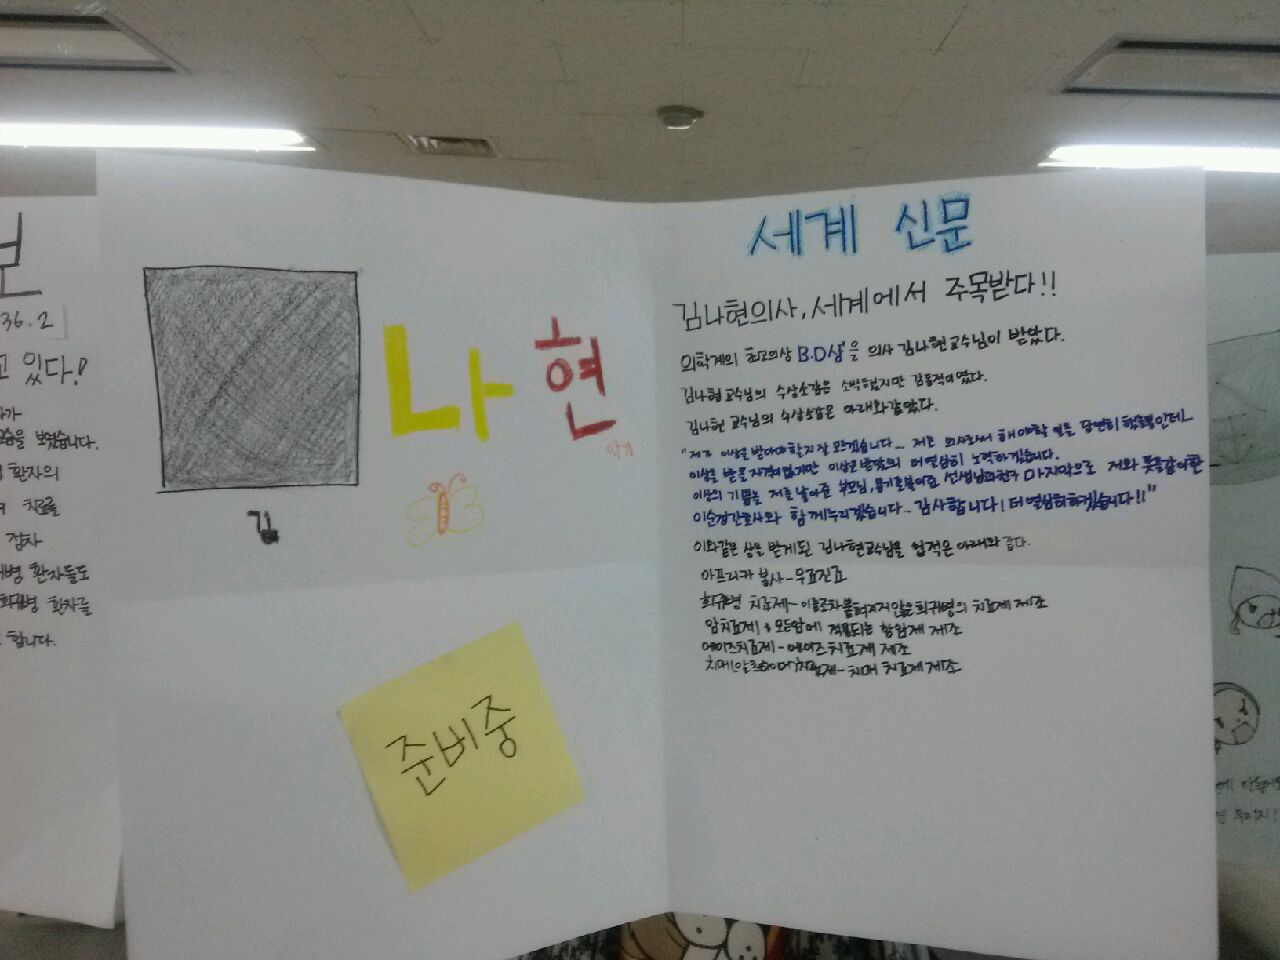 보
36.2
고 있다!
모습을 보였습니다.
환자의
치료를
점차
병 환자들도
희귀병 환자를
합니다.
김
나
현
작가
준비중
세계 신문
김나현의사, 세계에서 주목받다!!
의학계의 최고의상 'B.D상'을 의사 김나현교수님이 받았다.
김나현교수님의 수상소감은 소박했지만 감동적이였다.
김나현 교수님의 수상소감은 아래와같았다.
"제가 이상을 받아야할지 잘 모르겠습니다... 저는 의사로써 해야할 일을 당연히 했을뿐인데
이상을 받을 자격이없지만 이상을 받은만큼 더 열심히 노력하겠습니다.
이상의 기쁨을 저를 낳아준 부모님, 용기를불어준 선생님과친구 마지막으로 저와 뜻을같이한
이순정간호사와 함께누리겠습니다~ 감사합니다! 더 열심히하겠습니다!!"
이와같은 상을 받게된 김나현교수님을 업적은 아래와 같다.
아프리카 봉사-무료진료
희귀병 치료제- 이름조차 붙혀지지않은 희귀병의 치료제 제조
암치료제 모든암에 적용되는 항암제 제조
에이즈치료제 - 에이즈 치료제 제조
치매(알츠하이머) - 치매 치료제 제조